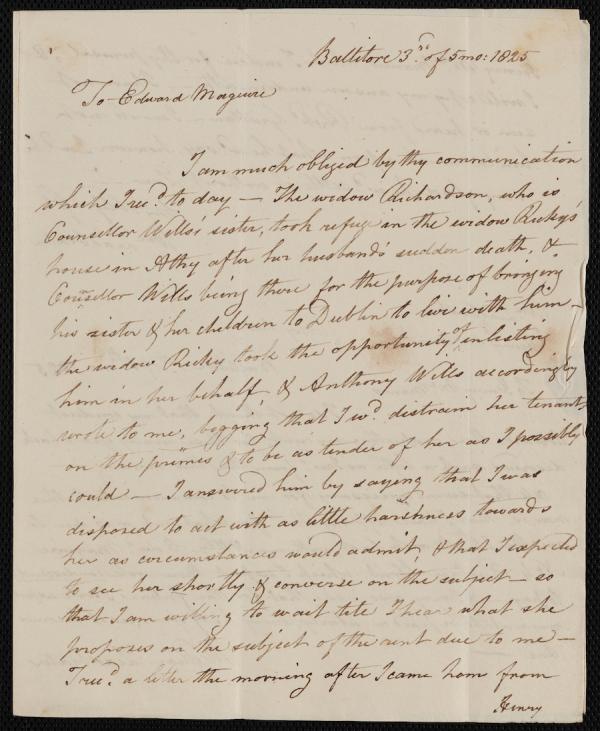 Ballitore 3rd. of 5mo: 1825
To Edward Maguire
I am much obliged by thy communication
which I recd. to day — The widow Richardson, who is
Counsellor Wills's sister, took refuge in the widow Ricky's
house in Athy after her husband's sudden death, &
Counsellor Wills being there for the purpose of bringing
his sister & her children to Dublin to live with him —
the widow Ricky took the opportunity of inlisting
him in her behalf, & Anthony Wills accordingly
wrote to me, begging that I wd. distrain her tenants
on the primes & to be as tender of her as I possibly
could — I answered him by saying that I was
disposed to act with as little harshness towards
her as circumstances would admit, & that I expected
to see her shortly & converse on the subject — so
that I am willing to wait till I hear what she
proposes on the subject of the rent due to me —
I recd. a letter the morning after I came hom from
Henry